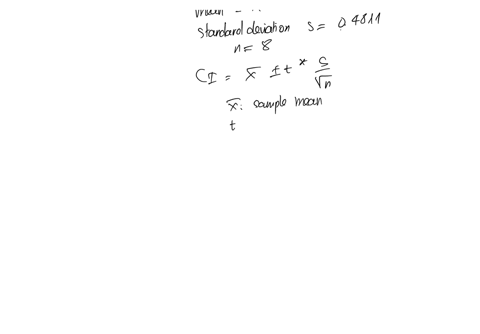 mean =
standard deviation s = 0.4811
n = 8
CI = x̄ ± t * s/√n
x̄: sample mean
t